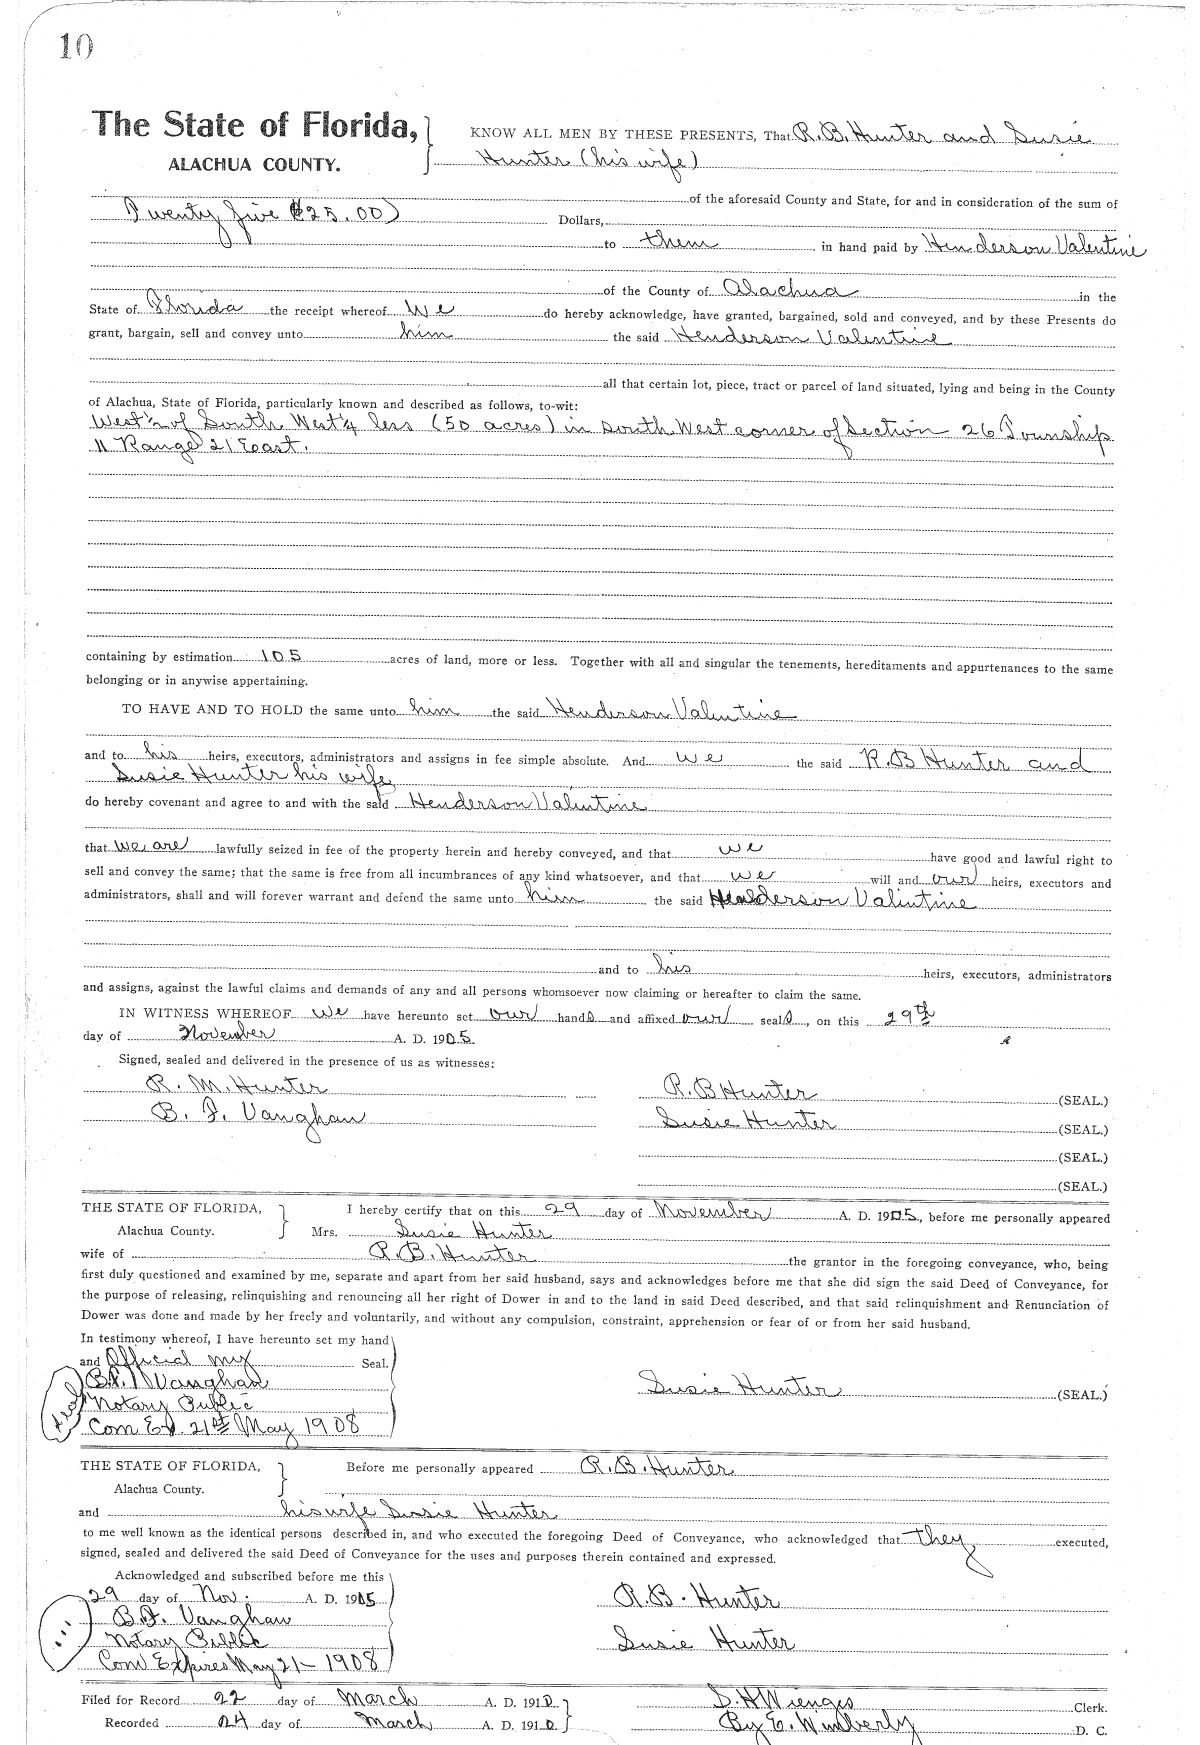 10
The State of Florida,
ALACHUA COUNTY.
KNOW ALL MEN BY THESE PRESENTS, That R. B. Hunter and Susie
Hunter (his wife)
of the aforesaid County and State, for and in consideration of the sum of
Twenty five ($25.00) Dollars,
to them in hand paid by Henderson Valentine
of the County of Alachua in the
State of Florida the receipt whereof we do hereby acknowledge, have granted, bargained, sold and conveyed, and by these Presents do
grant, bargain, sell and convey unto him the said Henderson Valentine
all that certain lot, piece, tract or parcel of land situated, lying and being in the County
of Alachua, State of Florida, particularly known and described as follows, to-wit:
West ½ of South West ¼ less (50 acres) in South West corner of Section 26 Township
11 Range 21 East.
containing by estimation 105 acres of land, more or less. Together with all and singular the tenements, hereditaments and appurtenances to the same
belonging or in anywise appertaining.
TO HAVE AND TO HOLD the same unto him the said Henderson Valentine
and to his heirs, executors, administrators and assigns in fee simple absolute. And we the said R. B Hunter and
Susie Hunter his wife
do hereby covenant and agree to and with the said Henderson Valentine
that we are lawfully seized in fee of the property herein and hereby conveyed, and that we have good and lawful right to
sell and convey the same; that the same is free from all incumbrances of any kind whatsoever, and that we will and our heirs, executors and
administrators, shall and will forever warrant and defend the same unto him the said Henderson Valintine
and to his heirs, executors, administrators
and assigns, against the lawful claims and demands of any and all persons whomsoever now claiming or hereafter to claim the same.
IN WITNESS WHEREOF we have hereunto set our hands and affixed our seals, on this 29th
day of November A. D. 1905.
Signed, sealed and delivered in the presence of us as witnesses:
R. M. Hunter R. B Hunter (SEAL.)
B. F. Vanghan Susie Hunter (SEAL.)
(SEAL.)
(SEAL.)
THE STATE OF FLORIDA, I hereby certify that on this 29 day of November A. D. 1905, before me personally appeared
Alachua County. Mrs. Susie Hunter
wife of R. B. Hunter the grantor in the foregoing conveyance, who, being
first duly questioned and examined by me, separate and apart from her said husband, says and acknowledges before me that she did sign the said Deed of Conveyance, for
the purpose of releasing, relinquishing and renouncing all her right of Dower in and to the land in said Deed described, and that said relinquishment and Renunciation of
Dower was done and made by her freely and voluntarily, and without any compulsion, constraint, apprehension or fear of or from her said husband.
In testimony whereof, I have hereunto set my hand
and Official my Seal.
B. F. Vanghan Susie Hunter (SEAL.)
Notary Public
Com Ex. 21st May 1908
THE STATE OF FLORIDA, Before me personally appeared R. B. Hunter
Alachua County.
and his wife Susie Hunter
to me well known as the identical persons described in, and who executed the foregoing Deed of Conveyance, who acknowledged that they executed,
signed, sealed and delivered the said Deed of Conveyance for the uses and purposes therein contained and expressed.
Acknowledged and subscribed before me this
29 day of Nov. A. D. 1905 R. B. Hunter
B. F. Vanghan
Notary Public Susie Hunter
Com Expires May 21 - 1908
Filed for Record 22 day of March A. D. 1910 S. H Wienges Clerk.
Recorded 24 day of March A. D. 1910 By E. Wimberly D. C.